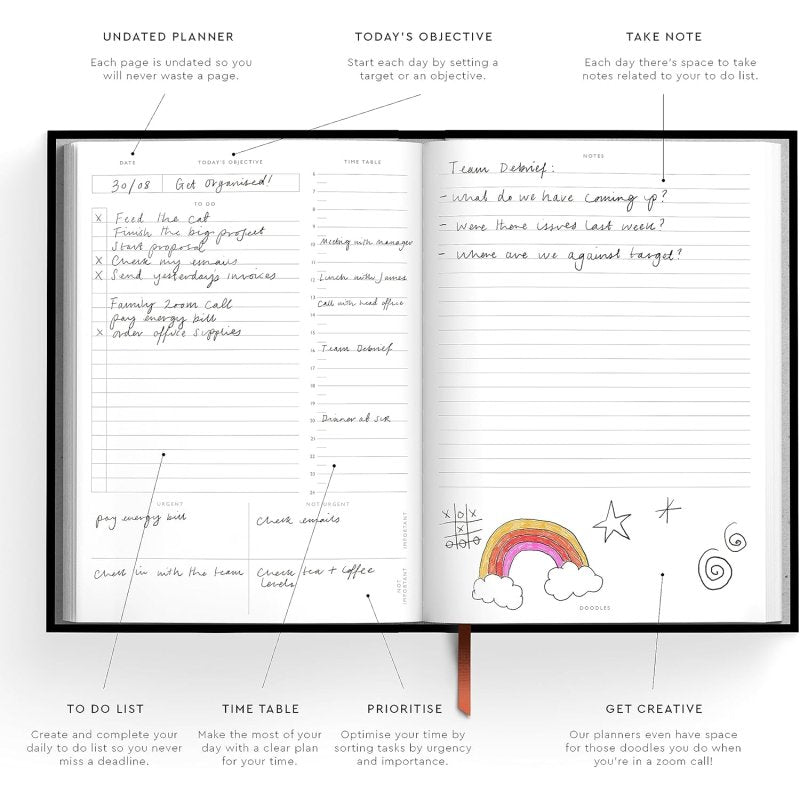 UNDATED PLANNER
Each page is undated so you
will never waste a page.
TODAY'S OBJECTIVE
Start each day by setting a
target or an objective.
TAKE NOTE
Each day there's space to take
notes related to your to do list.
DATE
TODAY'S OBJECTIVE
30/08
Get organised!
TO DO
X Feed the cat
Finish the big project
Start proposal
X Check my emails
X Send yesterdays invoices
Family Zoom call
pay energy bill
X order office supplies
TIME TABLE
6
7
8
9
10 Meeting with manager
11
12 Lunch with James
13 Call with head office
14
15
16 Team Debrief
17
18
19
20 Dinner at
21
22
23
24
URGENT
NOT URGENT
pay energy bill
Check emails
IMPORTANT
Check in with the team
Check tea + coffee
levels
NOT
IMPORTANT
NOTES
Team Debrief:
- what do we have coming up?
- were there issues last week?
- where are we against target?
X O X
X
O O O
DOODLES
TO DO LIST
Create and complete your
daily to do list so you never
miss a deadline.
TIME TABLE
Make the most of your
day with a clear plan
for your time.
PRIORITISE
Optimise your time by
sorting tasks by urgency
and importance.
GET CREATIVE
Our planners even have space
for those doodles you do when
you're in a zoom call!